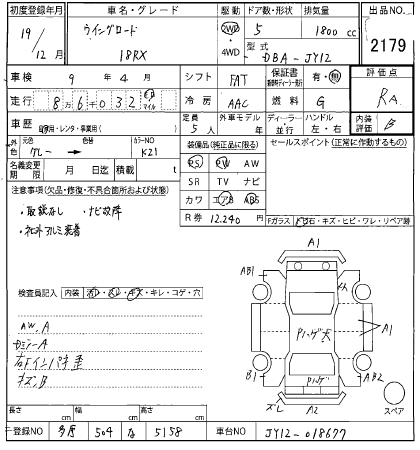 初度登録年月 車名・グレード 駆動 ドア数・形状 排気量 出品NO.
19/12月 ウイングロード 18RX 2WD 4WD 5 1800 cc 2179
型式 DBA-JY12
車検 9年4月 シフト FAT 保証書 有・無 評価点
走行 86,032 km マイル 冷房 AAC 燃料 G RA
車歴 自家用・レンタ・事業用( ) 定員 5人 外車モデル 年 ディーラー 並行 ハンドル 左・右 内装評価 B
外色 元色 グレー 色替 カラーNO K21 装備品(純正品に限る) セールスポイント(正常に作動するもの)
名義変更期限 月 日迄 積載 t PS PW AW
注意事項(欠品・修復・不具合箇所および状態) SR TV ナビ
・取説なし ・ナビ故障 カワ エアB ABS
・社外アルミ装着 R券 12,240円 Fガラス 飛石・キズ・ヒビ・ワレ・リペア跡
検査員記入 内装 キレ・コゲ・穴
AW. A
右Fインパネ歪
キズ. B
A1
AB1
A1
B1
AB2
ズレ
A2
スペア
長さ cm 幅 cm 高さ cm
登録NO 多摩 504 な 5158 車台NO JY12-018677